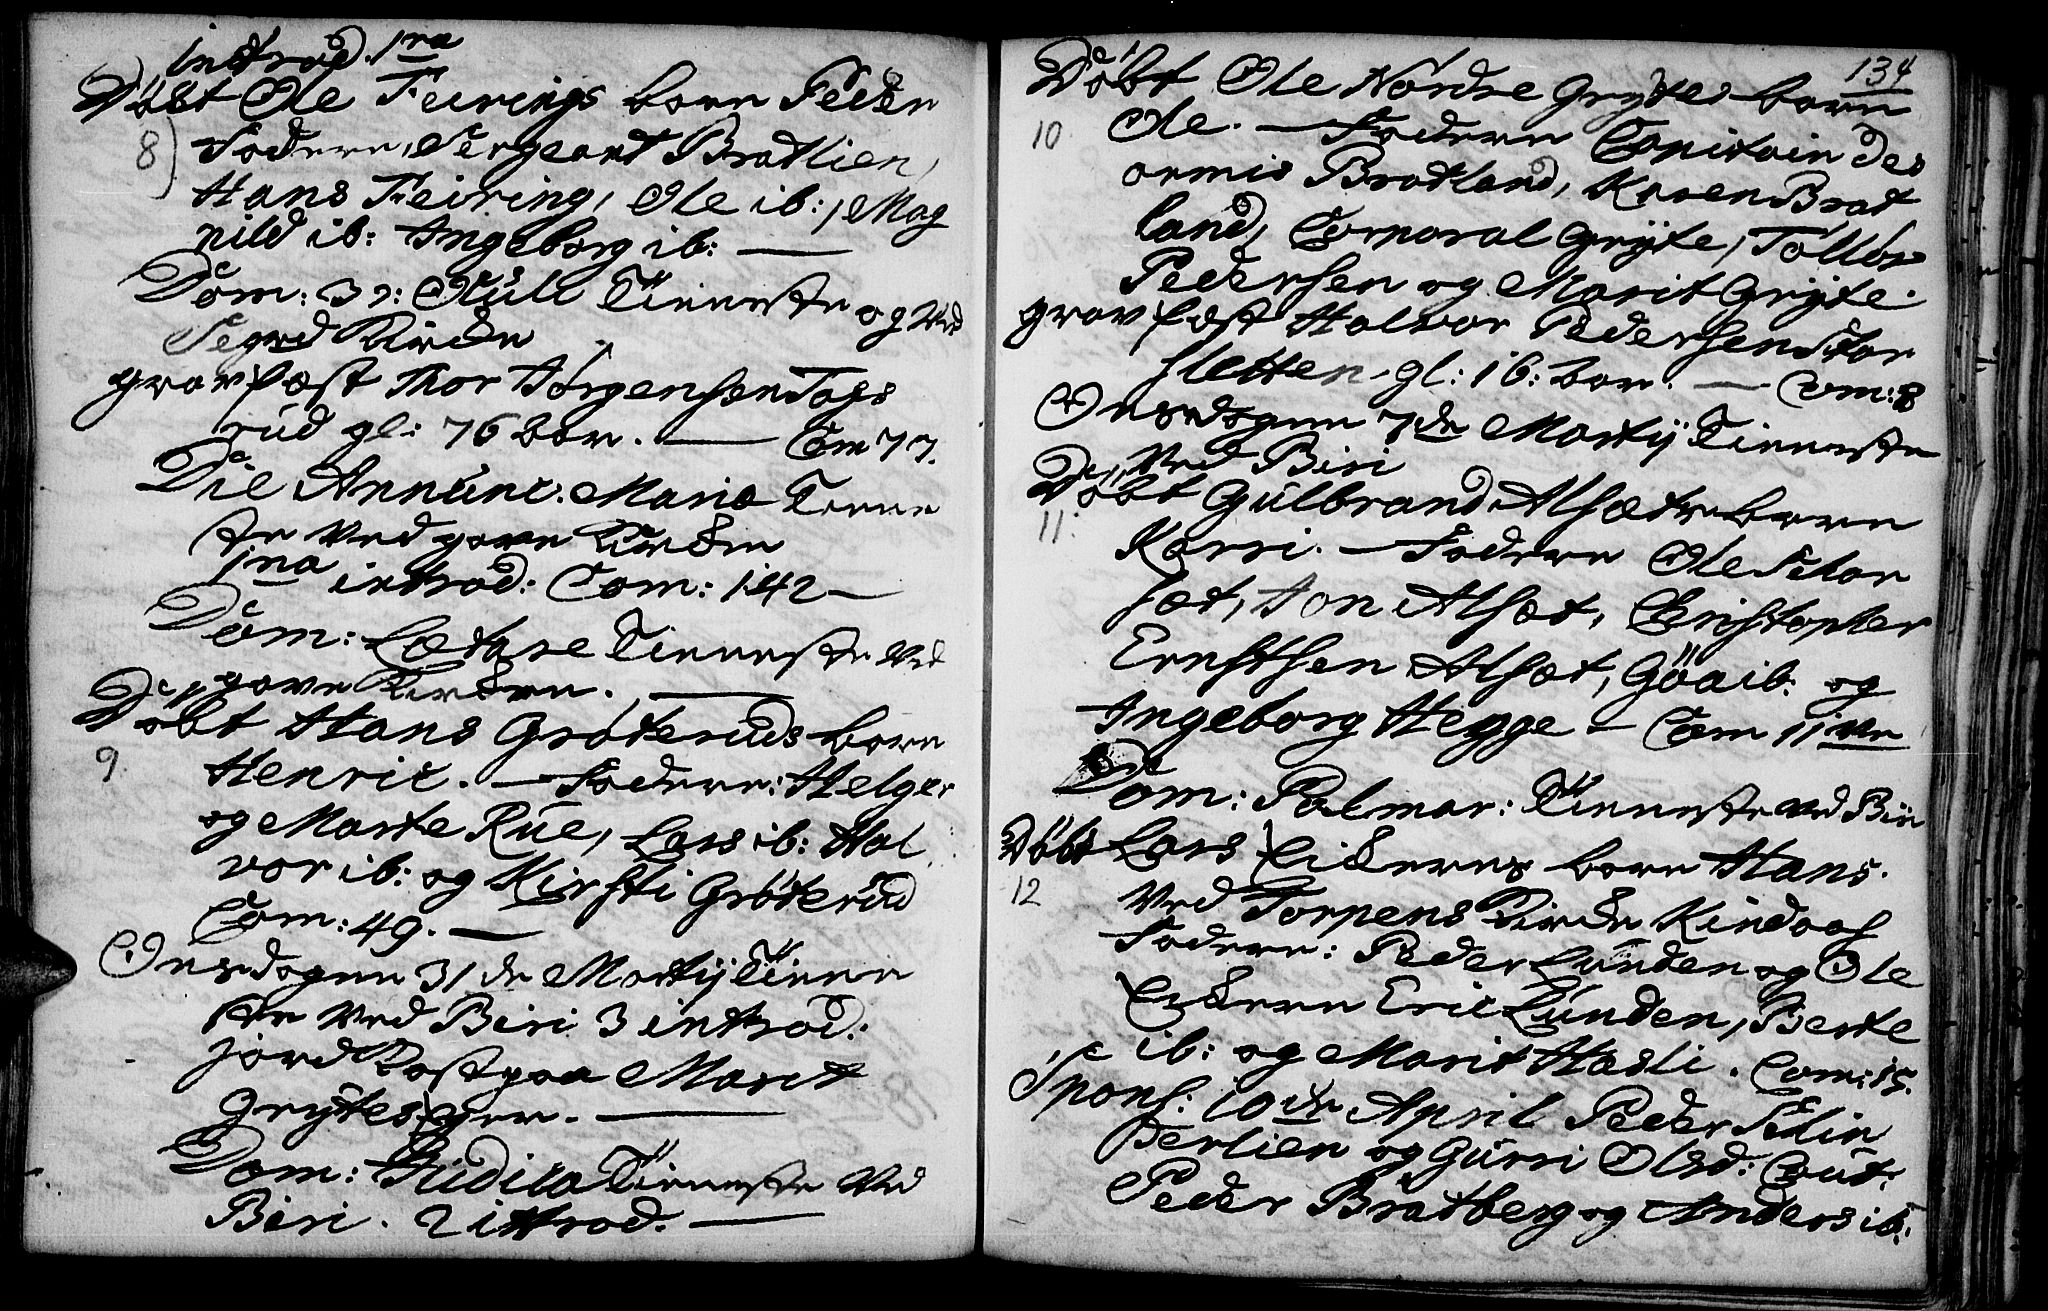 introd. 1na
Döbt Ole Feirings barn Peder
8) Fadere, Sergeant Bratlien,
Hans Feiring, Ole ib:, Mag
nild ib: Angeborg ib: —
Dom: 3: Oculi Tienneste og ved
Segard Kirche
gravfæst Thor Jörgensen Togs
rud gl: 76 bar. — Com 77.
Die Annunc: Mariæ Tienne
ste ved gave Kirchen
1na introd: Com: 142 —
Dom: Lætare Tienneste ved
gave Kirchen. —
Döbt Hans Gröterüds barn
9. Henric. — Fadere: Helge
og Marte Rue, Lars ib: Hal
vor ib: og Kirsti Gröterüd
Com: 49. —
Onsdagen 31 de Martij Tienne
ste ved Biri 3 introd:
jord Kast paa Marit
Grytes —
Dom: Judica Tienneste ved
Biri. 2 introd. —
134
Döbt Ole Nordre Grytes barn
10. Ole. — Fadere Capitain des
armis Bratland, Karen Brat
land, Corporal Gryte, Tollör
Pedersen og Marit Gryte.
gravfæst Halvor Pedersen Skar
sletten, gl: 16: bar. — Com: 8
Onsdagen 7de Martij Tienneste
ved Biri
Döbt Gulbrand Alsætr barn
11. Karri. — Fadere Ole Skar
sæt, Jon Alsæt, Christopher
Ernstsen Alsæt, Göa ib: og
Angeborg Hegge — Com 11ve
Dom: Palmar: Tienneste ved Biri
Döbt Lars barn Hans.
12 ved Torpens Kirche Kindaas
Fadere: Peder Lunden og Ole
Eric Lunden, Berte
ib: og Marit Hasli. Com: 15.
Spons: 10de April Peder Skin
berlien og Gurri Olsd: Caut:
Peder Bratberg og Anders ib: